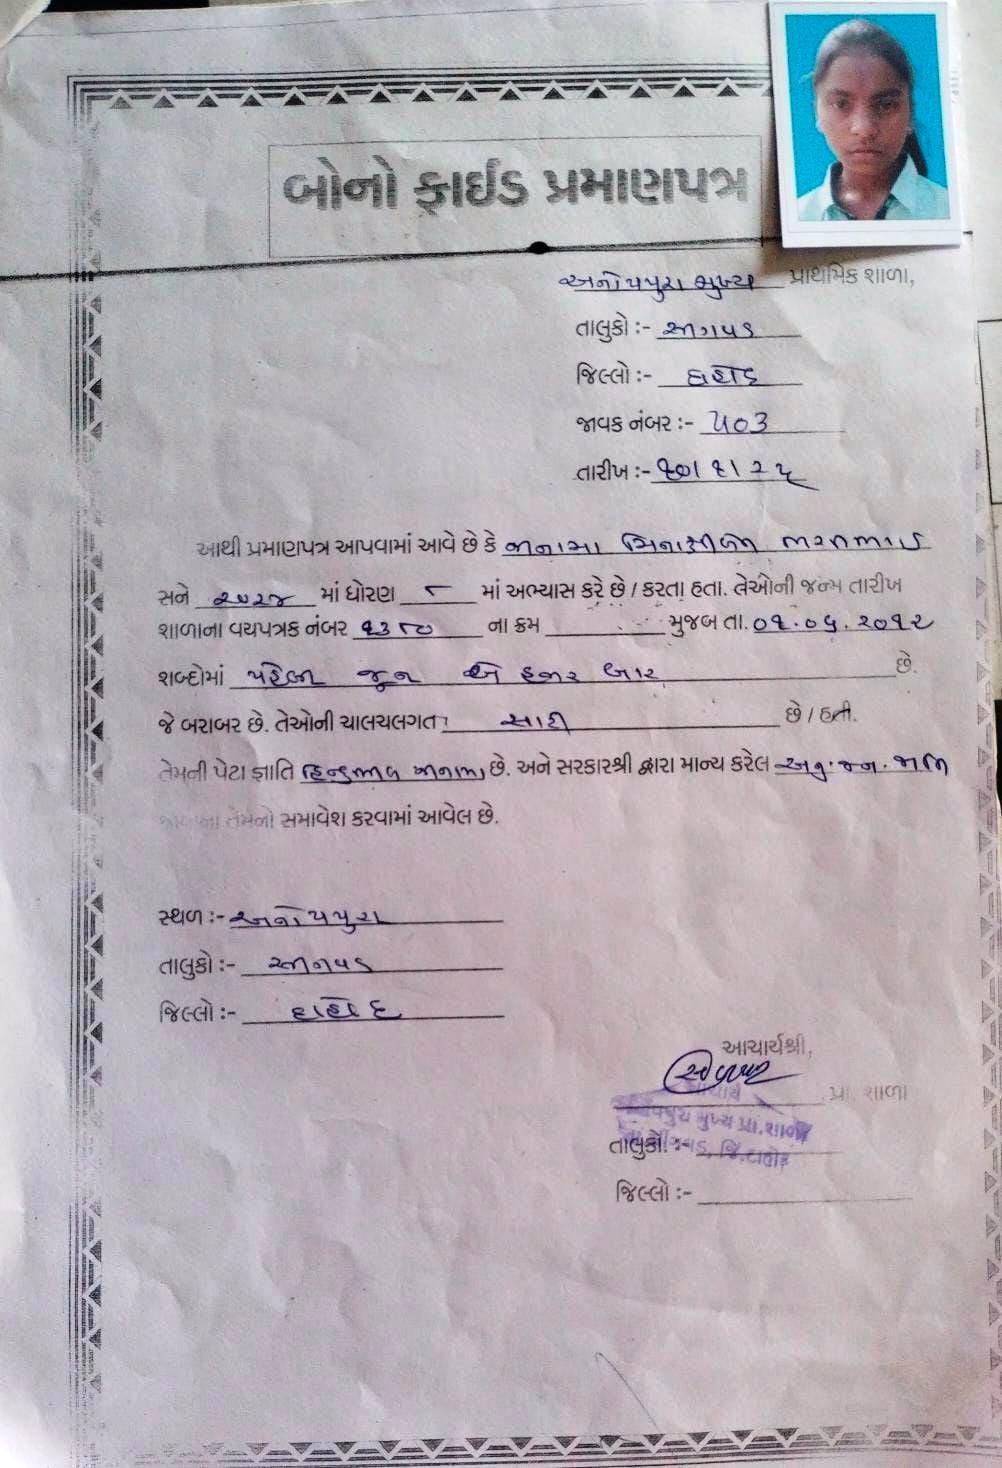 બોનો ફાઈડ પ્રમાણપત્ર
અનોપપુરા મુખ્ય પ્રાથમિક શાળા,
તાલુકો :-
જિલ્લો :- દાહોદ
જાવક નંબર :- ૫૦૩
તારીખ :-
આથી પ્રમાણપત્ર આપવામાં આવે છે કે મિનાક્ષીબેન ભરતભાઈ
સને ૨૦૨૪ માં ધોરણ ૮ માં અભ્યાસ કરે છે / કરતા હતા. તેઓની જન્મ તારીખ
શાળાના વયપત્રક નંબર ૧૩૮૦ ના ક્રમ મુજબ તા. ૦૧.૦૬.૨૦૧૨
શબ્દોમાં પહેલી જૂન બે હજાર બાર છે.
જે બરાબર છે. તેઓની ચાલચલગત સારી છે / હતી.
તેમની પેટા જ્ઞાતિ છે. અને સરકારશ્રી દ્વારા માન્ય કરેલ અનુ.જન.જાતિ
તેમનો સમાવેશ કરવામાં આવેલ છે.
સ્થળ :- અનોપપુરા
તાલુકો :-
જિલ્લો :- દાહોદ
આચાર્યશ્રી,
આચાર્ય પ્રા. શાળા
મુખ્ય પ્રા. શાળા
તાલુકો :- જિ. દાહોદ
જિલ્લો :-